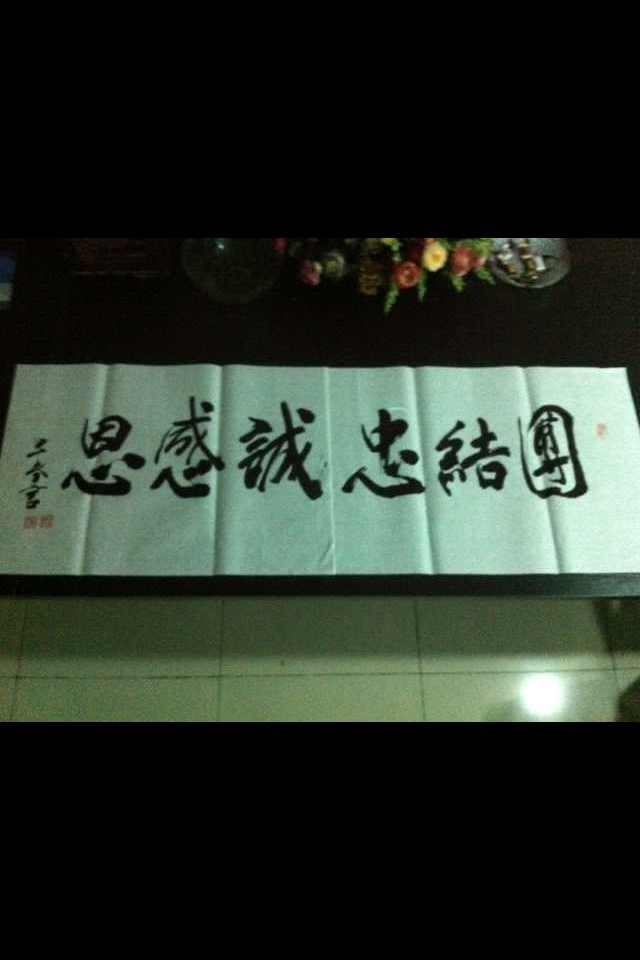 團結忠誠感恩